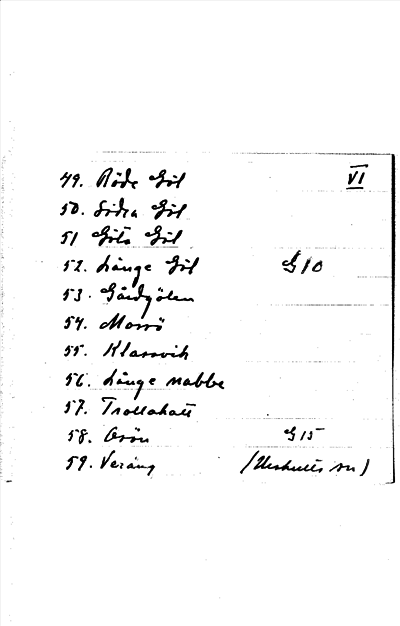 VI
49. Röde Göl
50. Södra Göl
51 Göls Göl
52. Långe Göl G10
53. Gårdgölen
54. Morrö
55. Klassvik
56. Långe nabbe
57. Trollahatt
58. Orön G15
59. Veräng (Urshults sn)